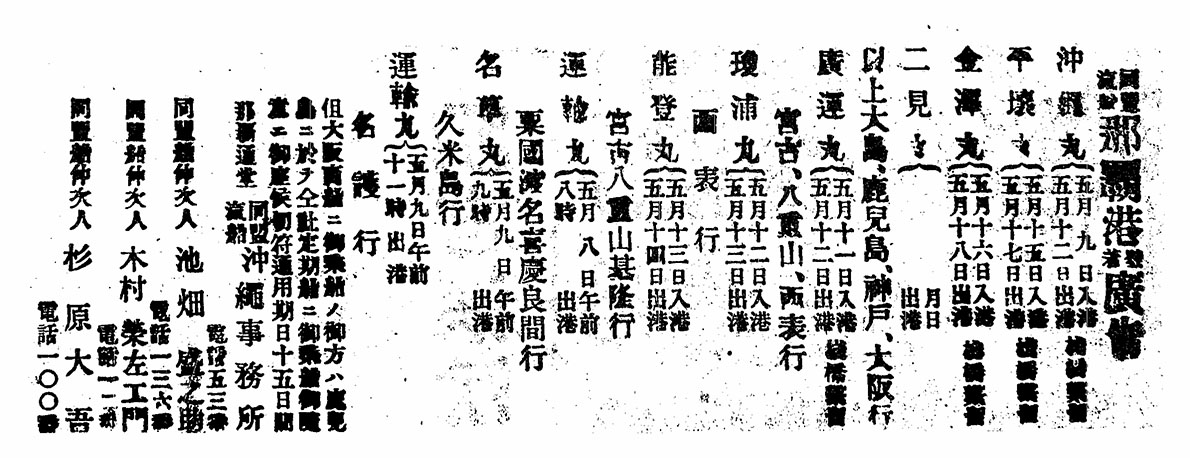 同盟汽船那覇港發著廣告
沖繩丸 五月九日入港 五月十二日出港 桟橋繋留
平壌丸 五月十五日入港 五月十七日出港 桟橋繋留
金澤丸 五月十六日入港 五月十八日出港 桟橋繋留
二見丸 月日出港
以上大島、鹿兒島、神戸、大阪行
廣運丸 五月十一日入港 五月十二日出港 桟橋繋留
宮古、八重山、西表行
瓊浦丸 五月十二日入港 五月十三日出港
西表行
能登丸 五月十三日入港 五月十四日出港
宮古八重山基隆行
運輸丸 五月八日午前八時出港
粟國渡名喜慶良間行
名護丸 五月九日午前九時出港
久米島行
運輸丸 五月九日午前十一時出港
名護行
但大阪商船ニ御乘船ノ御方ハ鹿兒
島ニ於テ仝社定期船ニ御乘船御隨
意ニ御座候切符通用期日十五日間
那覇通堂 同盟汽船 沖繩事務所 電話五三番
同盟船仲次人 池畑盛之助 電話一三六番
同盟船仲次人 木村榮左工門 電話一一番
同盟船仲次人 杉原大吾 電話一〇〇番